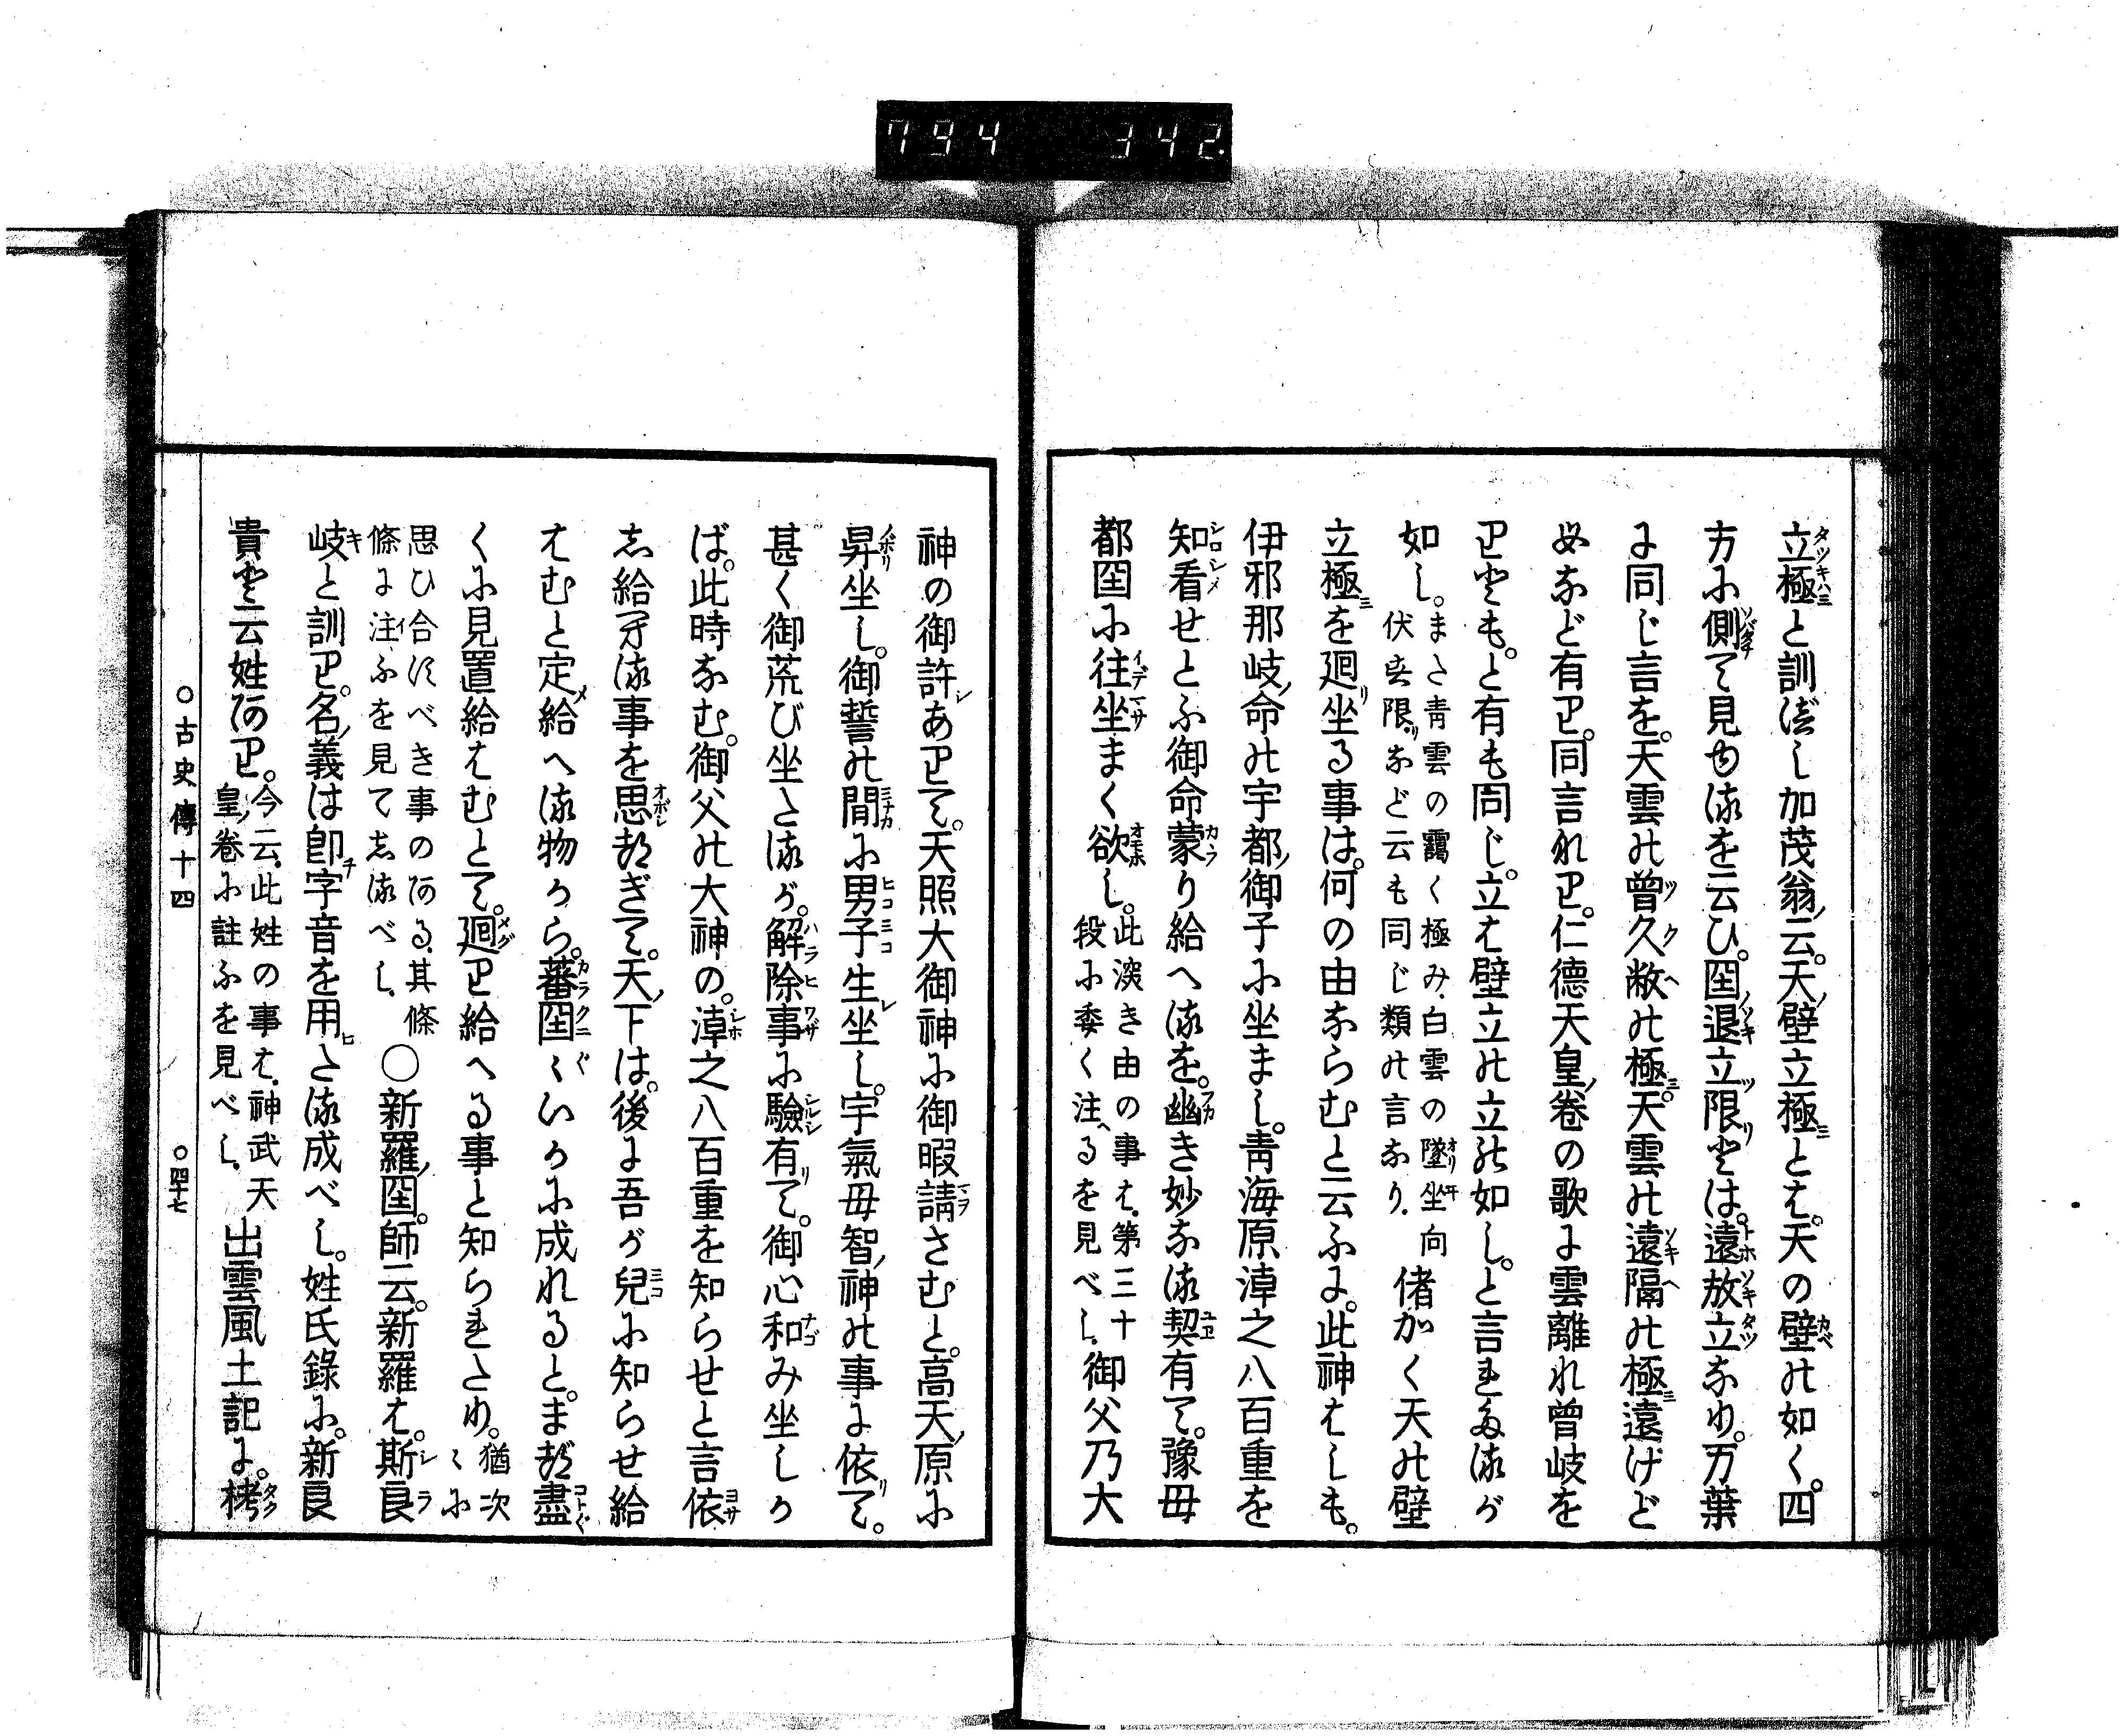 794 342.
立極と訓べし加茂翁ノ云。天ノ壁立極ミとは。天の壁の如く。四
方に側て見ゆるを云ひ。国退立限とは。遠放立なり。万葉
に同じ言を。天雲の曾久敝の極ミ。天雲の遠隔の極ミ遠けど
めなど有り。同言なり。仁徳天皇ノ巻の歌に雲離れ曾岐を
りとも。と有も同じ。立は壁立の立の如し。と言れたるが
如し。また青雲の靄く極み、白雲の墜坐向
伏す限リなど云も同じ類の言なり。偖かく天の壁
立極ミを廻リ坐る事は。何の由ならむと云ふに。此神はしも。
伊邪那岐ノ命の宇都ノ御子に坐まし。青海原潮之八百重を
知看せとふ御命蒙り給へるを。幽き妙なる契有て。豫母
都国に往坐まく欲し。此深き由の事は、第三十
段に委く注へるを見べし。御父乃大
神の御許シありて。天照大御神に御暇請さむと。高天ノ原に
昇坐し。御誓の間に男子生レ坐し。宇氣母智ノ神の事に依リて。
甚く御荒び坐たるが。解除事に驗有リて。御心和み坐しか
ば。此時なむ。御父の大神の。潮之八百重を知らせと言依
し給ひける事を思ほぎて。天ノ下は。後に吾が兒に知らせ給
はむと定メ給へる物から。蕃国ぐにいかに成れると。まづ盡
くに見置給はむとて。廻り給へる事と知られたり。猶次々に
思ひ合すべき事のある、其條
條に注ふを見てしるべし。○新羅ノ国。師云。新羅は。斯良
岐と訓り。名ノ義は卽チ字音を用ヒたる成べし。姓氏錄に。新良
貴と云姓あり。今云、此姓の事は、神武天
皇ノ巻に註ふを見べし。出雲風土記に。栲
○古史傳十四 ○四十七